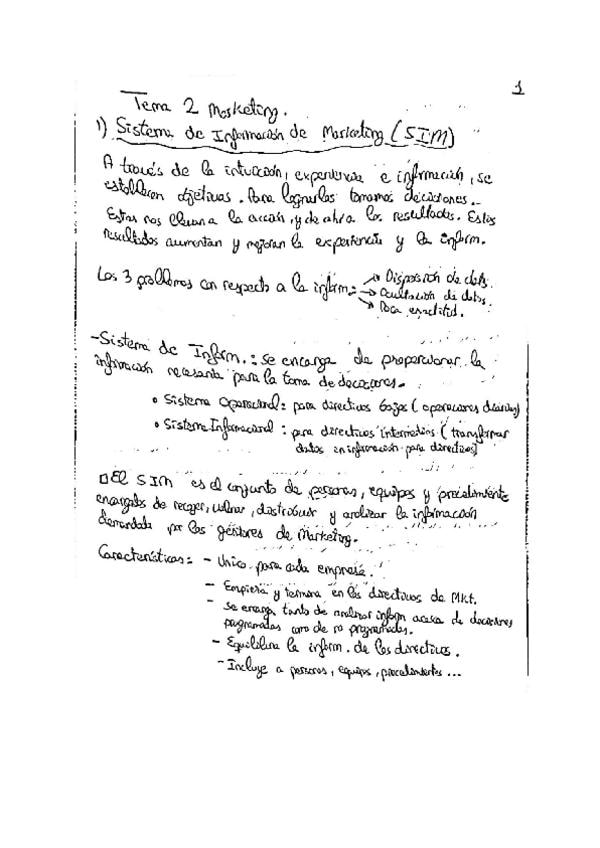 1
Tema 2 Marketing.
1) Sistema de Información de Marketing (SIM)
A través de la intuición, experiencia e información, se
establecen objetivos. Para lograrlos tomamos decisiones.
Estas nos llevan a la acción, y de ahí a los resultados. Estos
resultados aumentan y mejoran la experiencia y la inform.
Los 3 problemas con respecto a la inform: → Disposición de dats.
→ Ocultación de datos.
→ Poca exactitud.
- Sistema de Inform.: se encarga de proporcionar la
información necesaria para la toma de decisiones.
• Sistema Operacional: para directivos bajos (operaciones diarias)
• Sistema Informacional: para directivos intermedios (transformar
datos en información para directivos)
□ El SIM es el conjunto de personas, equipos y procedimiento
encargados de recoger, valorar, distribuir y analizar la información
demandada por los gestores de Marketing.
Características: - Único para cada empresa.
- Empieza y termina en los directivos de Mkt.
- se encarga tanto de analizar inform acerca de decisiones
programadas como de no programadas.
- Equilibra la inform. de los directivos.
- Incluye a personas, equipos, procedimientos...